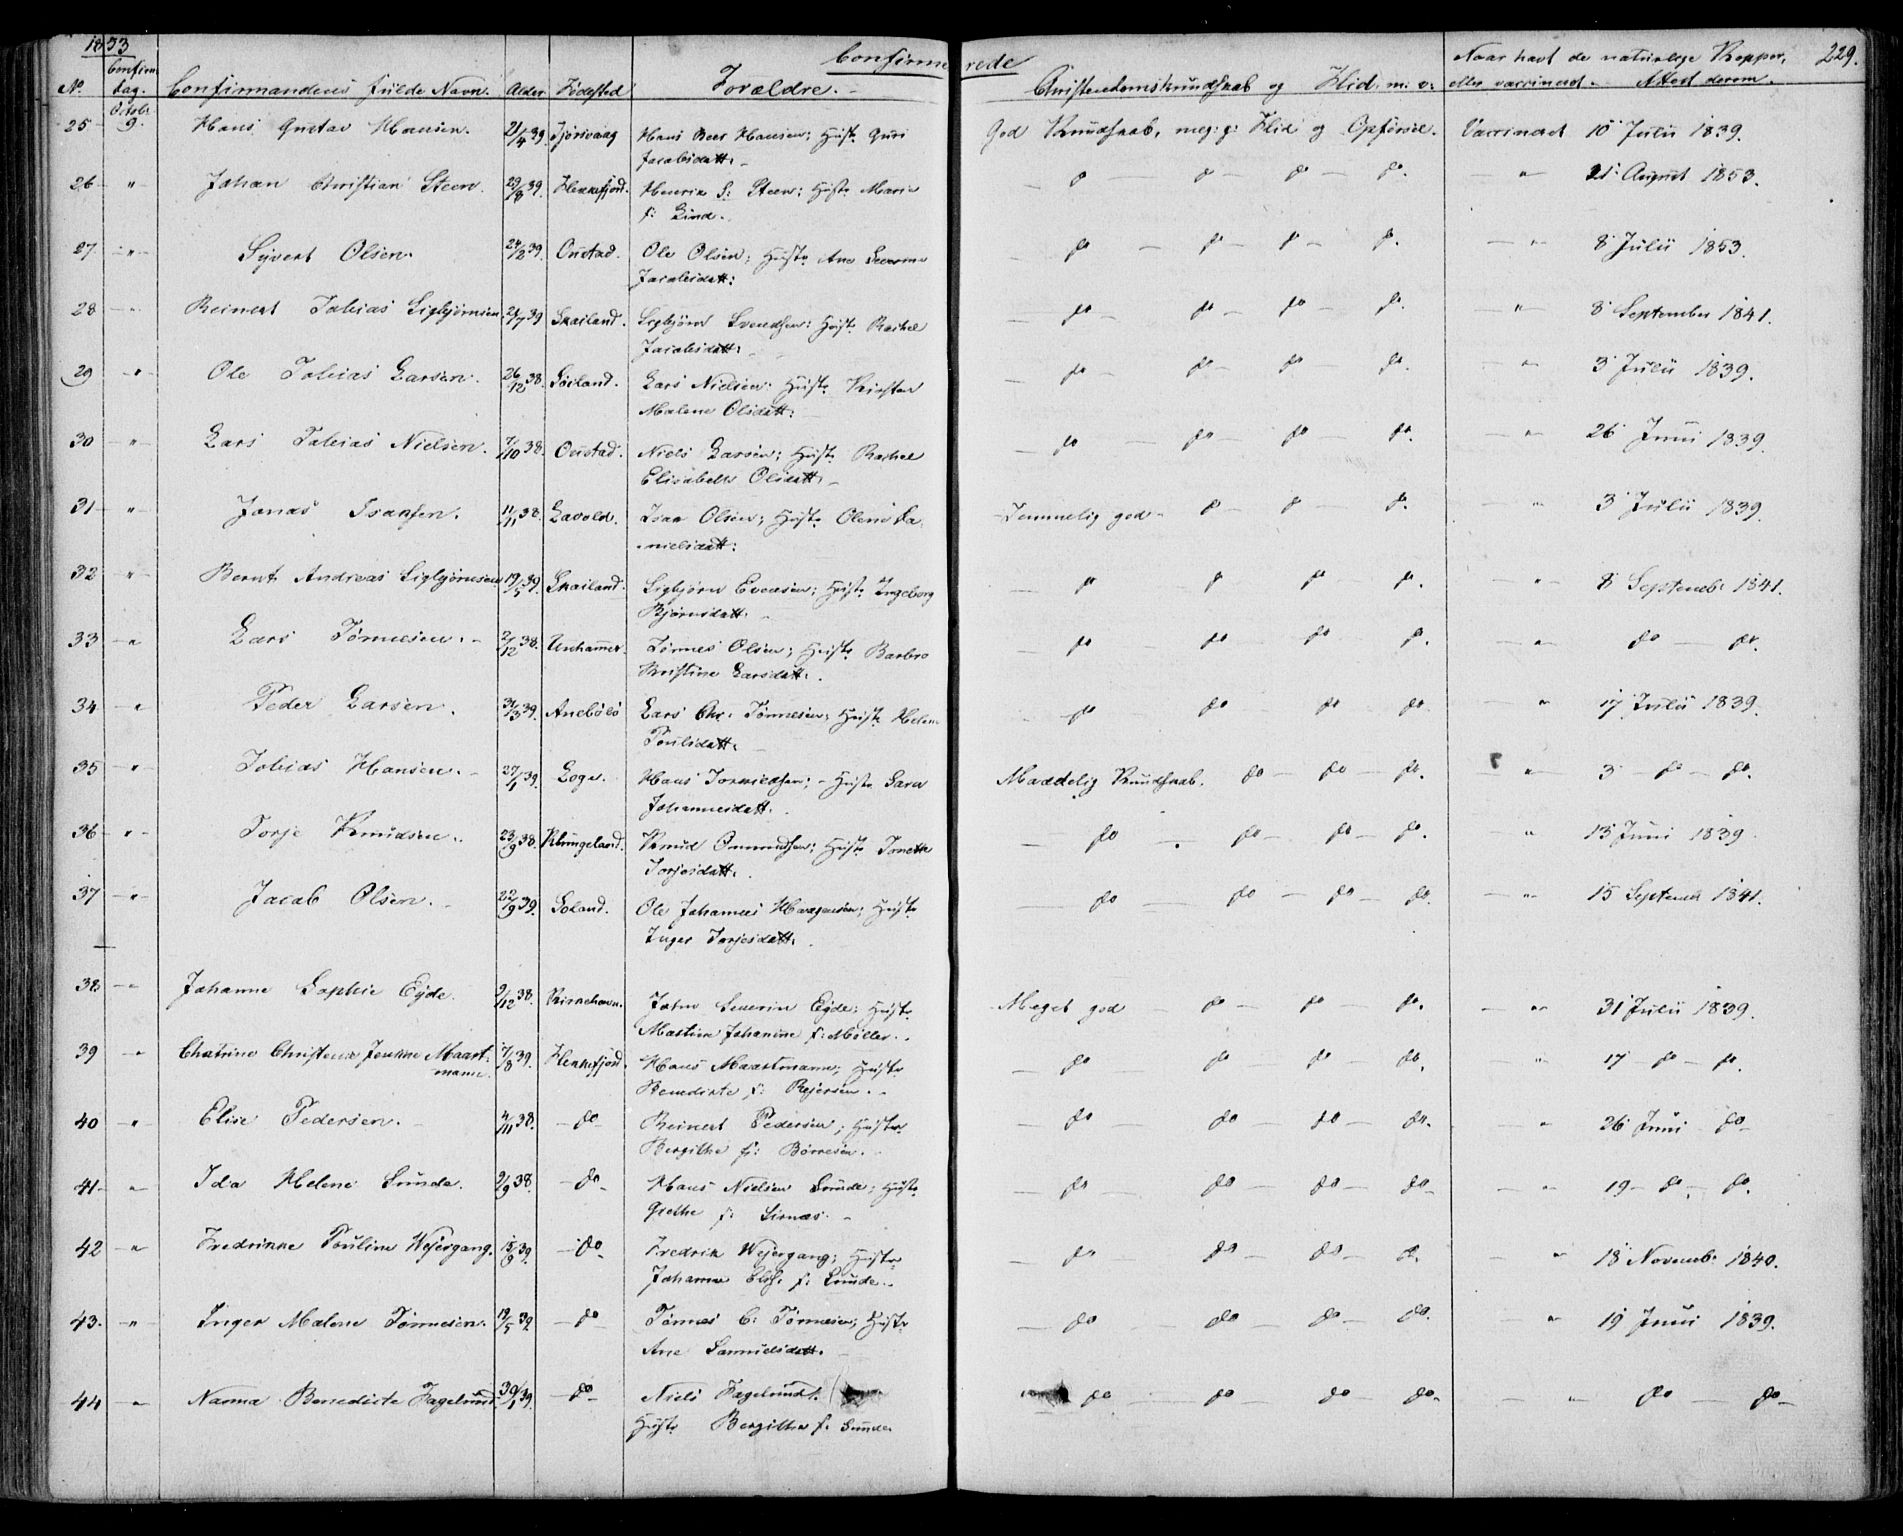 1853
Confirmerede
229.
No. Confirm. dag. Confirmandens fulde Navn. Alder Fødested Forældre. Christendomskundskab og Flid. m: v: Naar havt de naturlige Kopper, eller vaccineret. Attest derom.
25 Octobr 9. Hans Gustav Hansen. 21/4 39. Hans Hansen; Hustr. Guri God Kundskab, meg: g: Flid og Opførsel. Vaccineret 10 Julii 1839.
Jacobsdatt.
26 " Johan Christian Steen. 29/8 39. Flekkefjord. Henrik S: Steen; Hustr. Marie do do do do. " 21 August 1853.
f: Lind.
27 " Syvert Olsen. 24/2 39. Oustad. Ole Olsen; Hustr. Ane do do do do. " 8 Julii 1853.
Jacobsdatt:
28 " Reinert Tobias Sigbjørnsen 21/7 39 Skailand. Sigbjørn Svendsen; Hustr. Rachel do do do do. " 8 September 1841.
Jacobsdatt:
29 " Ole Tobias Larsen. 26/12 38. Søiland. Lars Nielsen; Hustr. Kirsten do do do do. " 3 Julii 1839.
Malene Olsdatt:
30 " Lars Tobias Nielsen. 7/10 38. Oustad. Niels Larsen; Hustr. Rachel do do do do. " 26 Junii 1839.
Elisabeth Olsdatt.
31 " Jonas Isaksen. 11/11 38. Lavold. Isak Olsen; Hustr. Olene Da- Temmelig god do do do. " 3 Julii 1839.
nielsdatt:
32 " Bernt Andreas Sigbjørnsen 19/5 39. Skailand. Sigbjørn Evensen; Hustr. Ingeborg do do do do. " 8 Septemb. 1841.
Bjørnsdatt.
33 " Lars Tønnesen. 2/12 38. Urshammer. Tønnes Olsen; Hustr. Barbro do do do do. " do do.
Kristine Larsdatt.
34 " Peder Larsen. 31/3 39. Anebølø Lars Chr. Tønnesen; Hustr. Helene do do do do. " 17 Julii 1839.
Poulsdatt.
35 " Tobias Hansen. 27/1 39. Loge. Hans Hustr. Sara Maadelig Kundskab. do do do. " 3 do do.
Johannesdatt.
36 " Torje Knudsen. 23/9 38. Klungeland. Knud Ommundsen; Hustr. Tonette do do do do. " 13 Junii 1839.
Torjesdatt.
37 " Jacob Olsen. 22/9 39. Soland. Ole Johannes Haagensen; Hustr. do do do do. " 15 Septemb 1841.
Inger Torjesdatt.
38 " Johanne Sophie Eyde. 9/12 38. Kirkehavn. John Severin Eyde; Hustr. Meget god do do do. " 31 Julii 1839.
Johanne f: Møller.
39 " Chatrine Christense Maast- 7/8 39. Flekkefjord. Hans Maastmann; Hustr. do do do do. " 17 do do.
mann. Benedikte f: Rejersen.
40 " Elise Pedersen. 4/11 38. do Reinert Pedersen; Hustr. do do do do. " 26 Junii do
Bergithe f: Børresen.
41 " Ida Helene Sunde. 9/9 38. do Hans Nielsen Sunde; Hustr. do do do do " 19 do do.
Grethe f: Sirnæs.
42 " Fredrikke Pouline Wejergang. 15/9 39. do Fredrik Wejergang; Hustr. do do do do. " 18 Novemb. 1840.
Johanne f: Sunde.
43. " Inger Malene Tønnesen. 19/5 39 do Tønnes C: Tønnesen; Hustr. do do do do. " 19 Junii 1839.
Ane Samuelsdatt.
44 " Nanna Benedicte Fagelund 30/1 39. do Niels Fagelund. do do do do " do do
Hustr. Bergitha f: Sunde